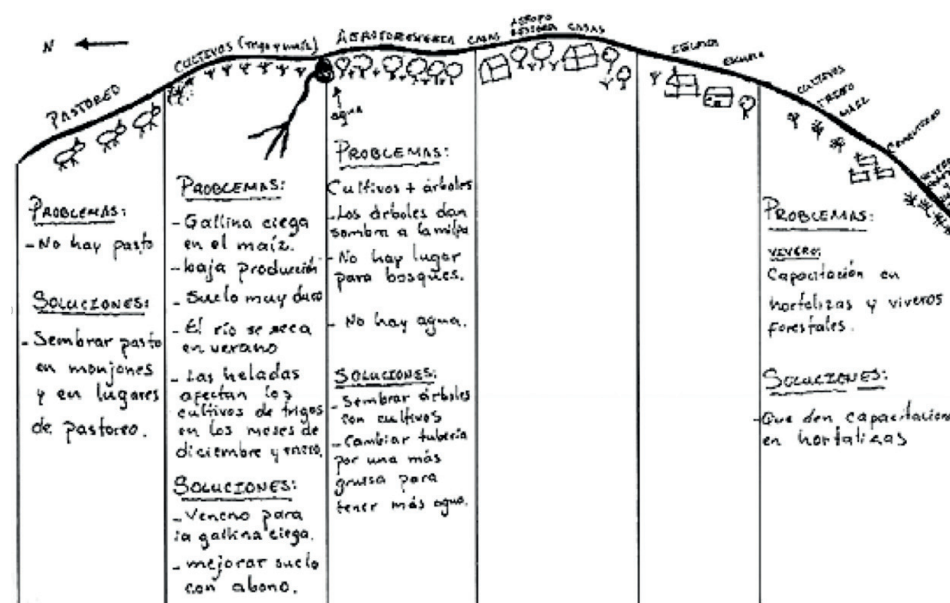 N
PASTOREO
CULTIVOS (trigo y maíz)
AGROFORESTERIA
CASAS
CASAS
IGLESIA
ESCUELA
CULTIVOS
TRIGO
MAIZ
CEMENTERIO
agua
PROBLEMAS:
-No hay pasto
SOLUCIONES:
-Sembrar pasto
en monjones
y en lugares
de pastoreo.
PROBLEMAS:
-Gallina ciega
en el maíz.
-baja producción
-Suelo muy duro
-El río se seca
en verano
-Las heladas
afectan los
cultivos de trigos
en los meses de
diciembre y enero.
SOLUCIONES:
-Veneno para
la gallina ciega.
-mejorar suelo
con abono.
PROBLEMAS:
Cultivos + árboles
-Los árboles dan
sombra a la milpa
-No hay lugar
para bosques.
-No hay agua.
SOLUCIONES:
-Sembrar árboles
con cultivos
-Cambiar tubería
por una más
gruesa para
tener más agua.
PROBLEMAS:
VIVERO:
Capacitación en
hortalizas y viveros
forestales.
SOLUCIONES:
-Que den capacitacion
en hortalizas